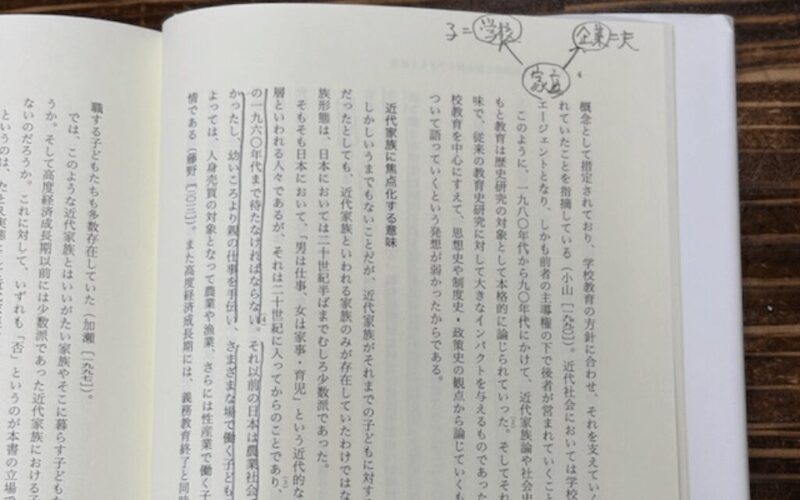 子=学校
企業=夫
家庭
概念として措定されており、学校教育の方針に合わせ、それを支えてい
れていたことを指摘している（小山［一九九〇］）。近代社会においては学校
エージェントとなり、しかも前者の主導権の下で後者が営まれていくこと
このように、一九八〇年代から九〇年代にかけて、近代家族論や社会史
もと教育は歴史研究の対象として本格的に論じられていった。そしてそれ
味で、従来の教育史研究に対して大きなインパクトを与えるものであった
校教育を中心にすえて、思想史や制度史・政策史の観点から論じていくも
ついて語っていくという発想が弱かったからである。
近代家族に焦点化する意味
しかしいうまでもないことだが、近代家族がそれまでの子どもに対する
だったとしても、近代家族といわれる家族のみが存在していたわけではな
族形態は、日本においては二十世紀半ばまでむしろ少数派であった。
そもそも日本において、「男は仕事、女は家事・育児」という近代的な
層といわれる人々であるが、それは二十世紀に入ってからのことであり、
の一九六〇年代まで待たなければならない。それ以前の日本は農業社会
かったし、幼いころより親の仕事を手伝い、さまざまな場で働く子ども
よっては、人身売買の対象となって農業や漁業、さらには性産業で働く子
情である（藤野［二〇一二］）。また高度経済成長期には、義務教育終了と同時
職する子どもたちも多数存在していた（加瀬［一九九七］）。
では、このような近代家族とはいいがたい家族やそこに暮らす子ども
うか。そして高度経済成長期以前には少数派であった近代家族における
ないのだろうか。これに対して、いずれも「否」というのが本書の立場で
というのは、たとえ実態として近代家族